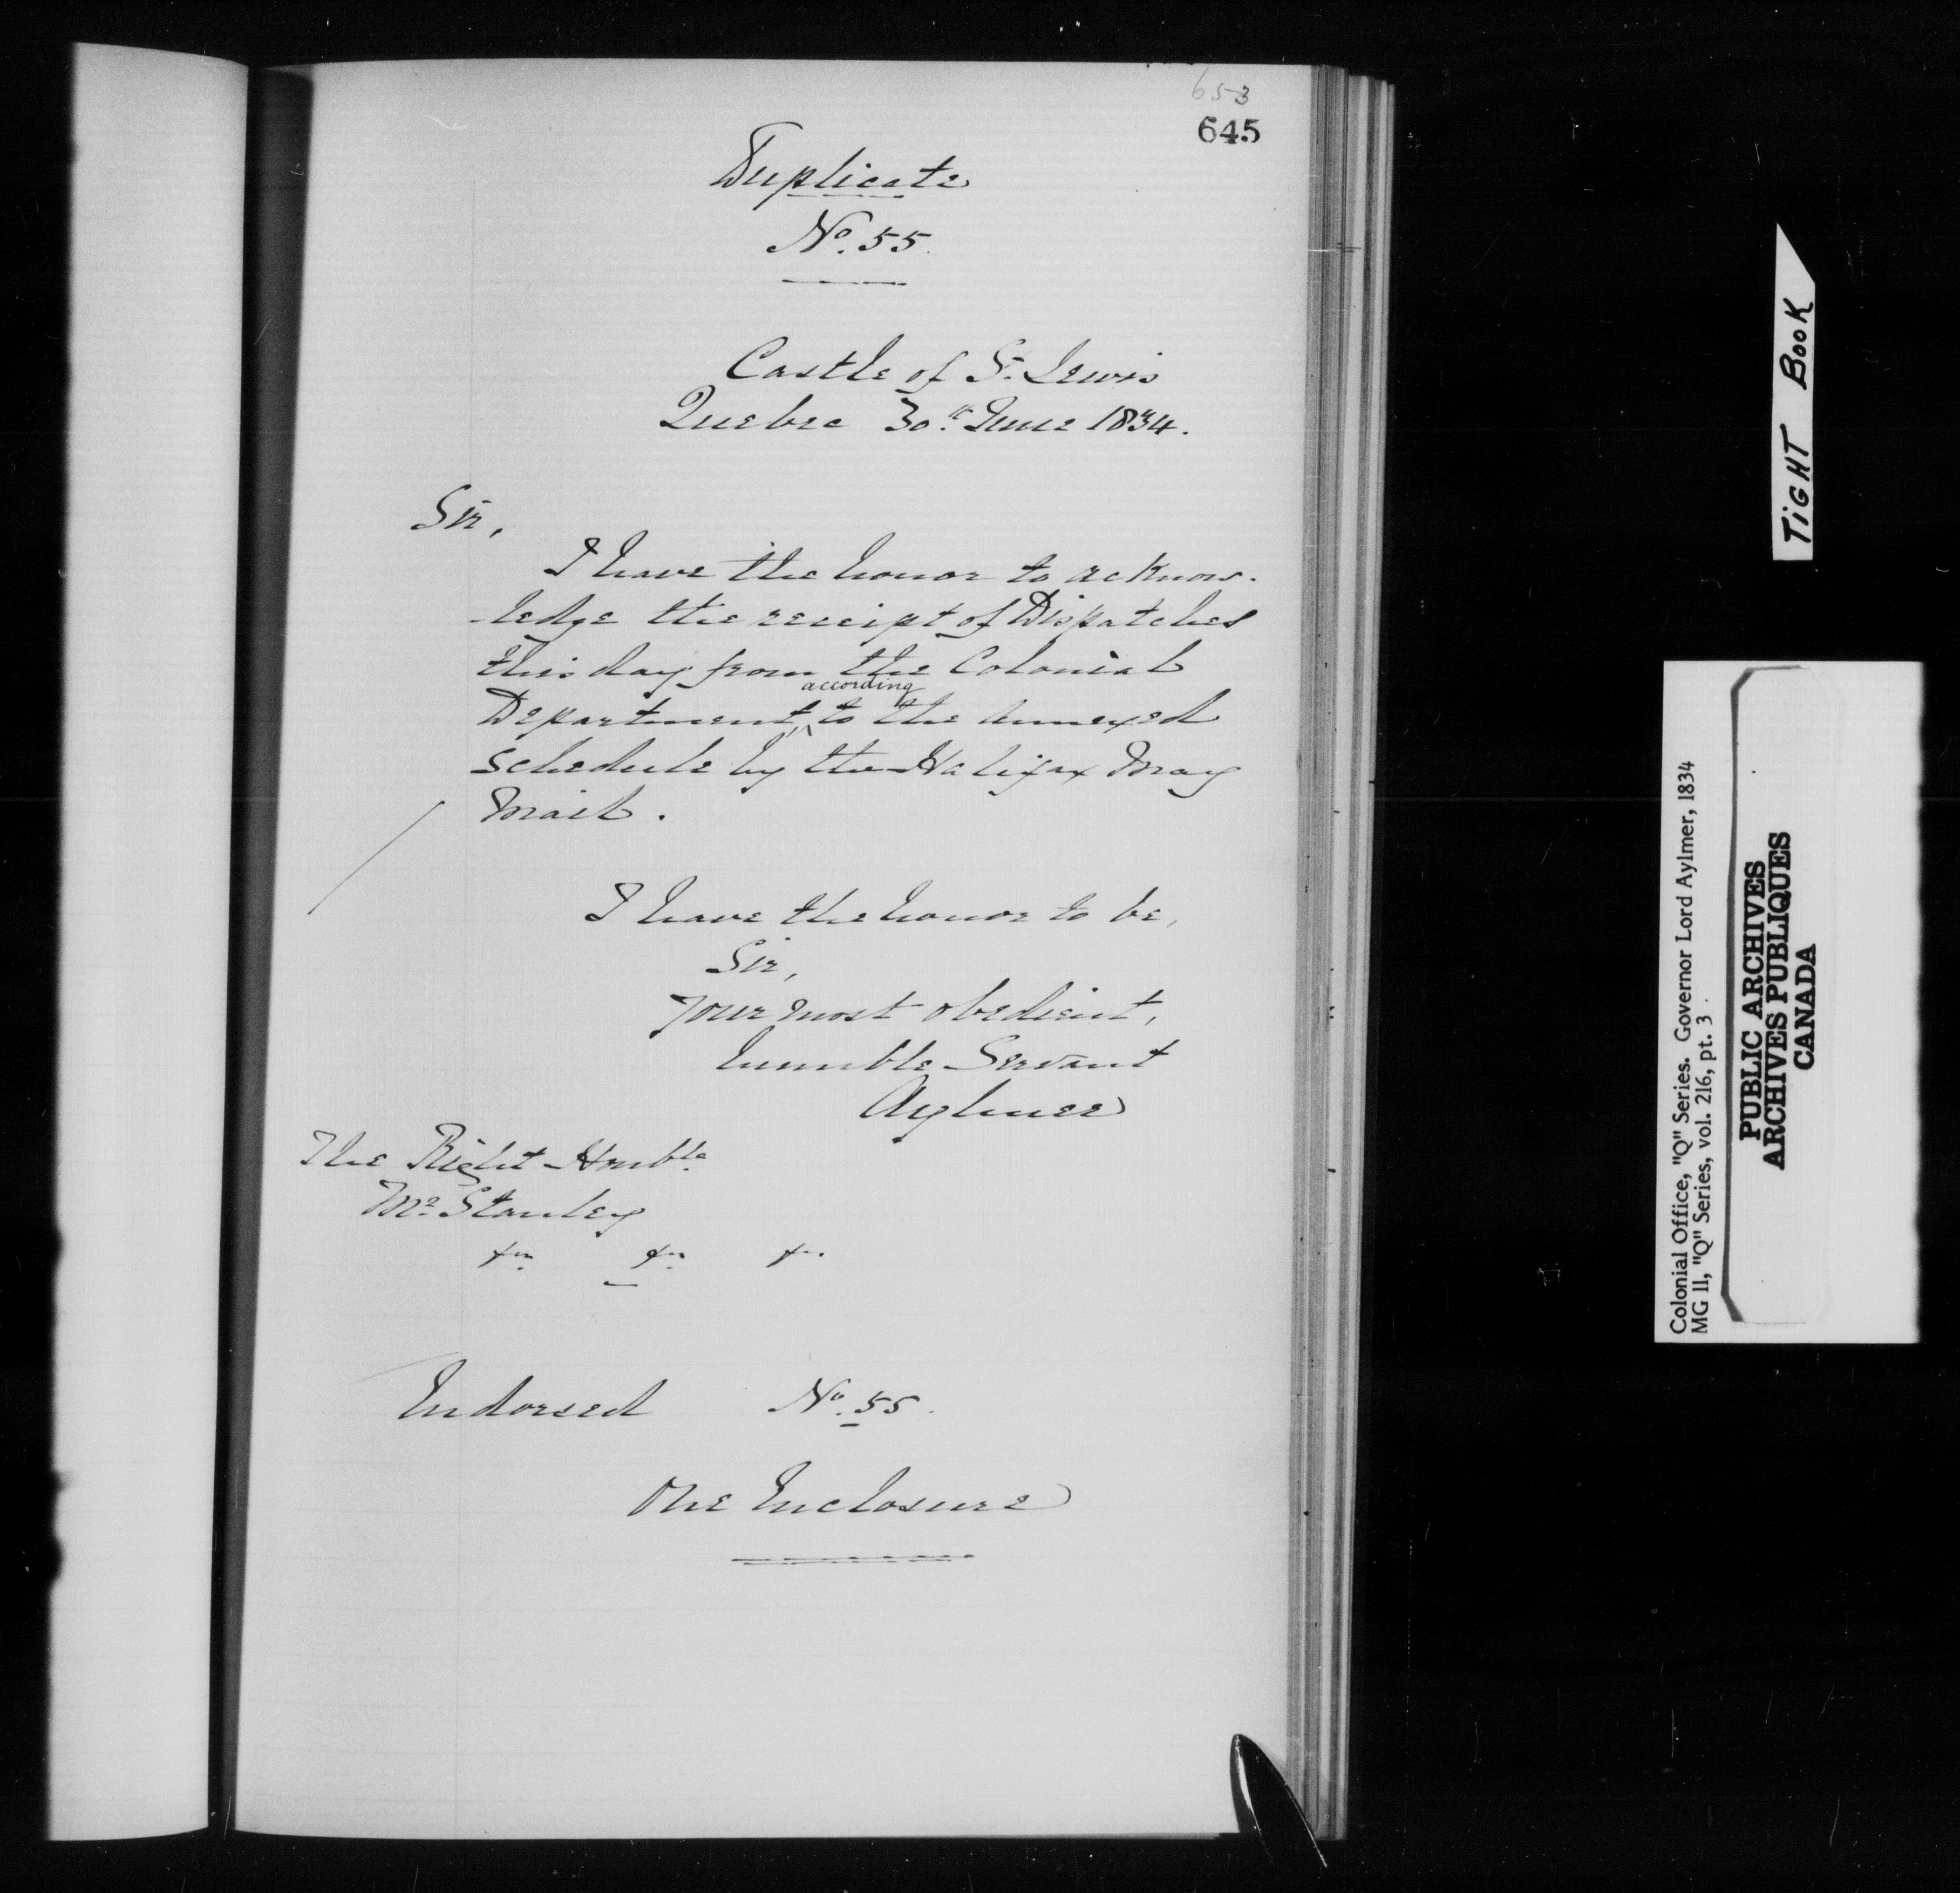 653
645
Duplicate
No. 55.
Castle of St. Lewis
Quebec 30th June 1834.
Sir,
I have the honor to acknow-
-ledge the receipt of Dispatches
this day from the Colonial
according
Department, to the annexed
schedule by the Halifax May
Mail.
I have the honor to be,
Sir,
Your most obedient,
humble Servant
Aylmer
The Right Honble
Mr. Stanley
&c. &c. &c.
Endorsed No. 55.
One Enclosure
TIGHT BOOK
Colonial Office, "Q" Series. Governor Lord Aylmer, 1834
MG 11, "Q" Series, vol. 216, pt. 3
PUBLIC ARCHIVES
ARCHIVES PUBLIQUES
CANADA